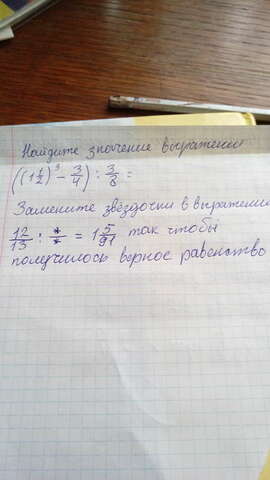 Найдите значение выражения
((1 1/2)³ - 3/4) : 3/8 =
Замените звёздочки в выражении
12/13 : */* = 1 5/91 так чтобы
получилось верное равенство